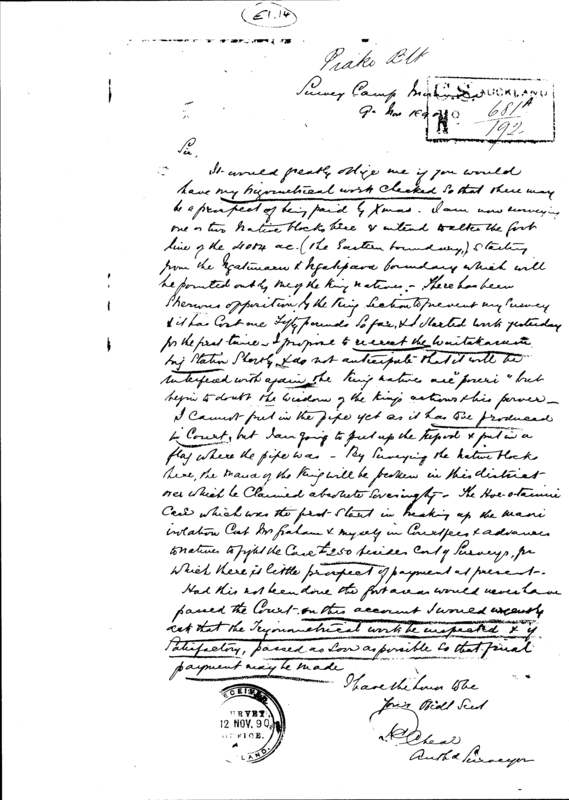 E1.14
Piako Blk
Survey Camp
9 Nov 1890
C.S. AUCKLAND
No 681A
192
Sir,
It would greatly oblige me if you would
have my trigometrical work checked so that there may
be a prospect of being paid by Xmas. I am now surveying
one or two Native blocks here & intend to alter the first
line of the 4004 ac. (the Eastern boundary,) starting
from the Ngatimaru & Ngatipaoa boundary which will
be pointed out by me of the King natives. There has been
strenuous opposition by the King section to prevent my survey
& it has cost me fifty pounds so far, & I started work yesterday
for the first time. I propose to re erect the
Trig Station shortly & do not anticipate that it will be
interfered with again, the King natives are "poueri" but
begin to doubt the wisdom of the King's actions & his power -
I cannot put in the pipe yet as it has to be produced
in Court, but I am going to put up the tripod & put in a
flag where the pipe was - By surveying the Native blocks
here, the mana of the King will be broken in this district
over which he claimed absolute sovereignty - The Hoe-o-tainui
case which was the first start in breaking up the maori
isolation cost Mr Graham & myself in Court fees & advances
to natives to fight the case £250 besides cost of surveys, for
which there is little prospect of payment at present.
Had this not been done the former areas would never have
passed the Court - on this account I would
ask that the Trigonometrical work be inspected & if
satisfactory, passed as soon as possible so that final
payment may be made
I have the honor to be
Your Obdt Servt
Cheal
Authd Surveyor
RECEIVED
SURVEY
12 NOV. 90
OFFICE.